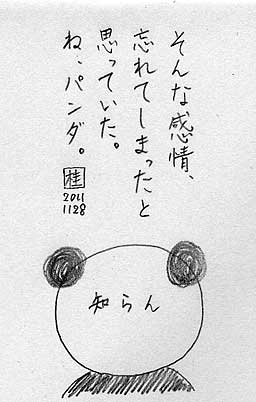 そんな感情、
忘れてしまったと
思っていた。
ね、パンダ。
桂
2011
1128
知らん